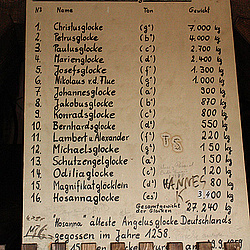 Nº Name Ton Gewicht
1. Christusglocke (g°) 7.000 kg
2. Petrusglocke (b°) 4.000 kg
3. Paulusglocke (c') 2.700 kg
4. Marienglocke (d') 2.400 kg
5. Josefsglocke (f') 1.300 kg
6. Nikolaus v.d. Flüe (f') 1.000 kg
7. Johannesglocke (g') 900 kg
8. Jakobusglocke (b') 870 kg
9. Konradsglocke (c'') 800 kg
10. Bernhardsglocke (d'') 550 kg
12. Lambert u. Alexander 220 kg
12. Michaelsglocke 150 kg
13. Schutzengelglocke 120 kg
14. Odiliaglocke (c''') 120 kg
15. Magnifikatglöcklein 80 kg
16. Hosannaglocke (es') 3.400 kg
Gesamtgewicht der Glocken 27.240 kg
TS
HANNES
"Hosanna" älteste Angelusglocke Deutschlands
gegossen im Jahre 1258